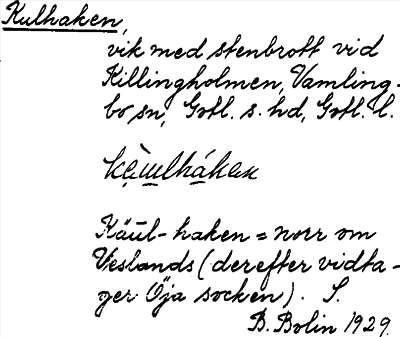 Kulhaken,
vik med stenbrott vid
Killingholmen, Vamling-
bo sn, Gotl. s. hd, Gotl. l.
Käul-haken = norr om
Veslands (derefter vidta-
ger Öja socken). S.
B. Bolin 1929.